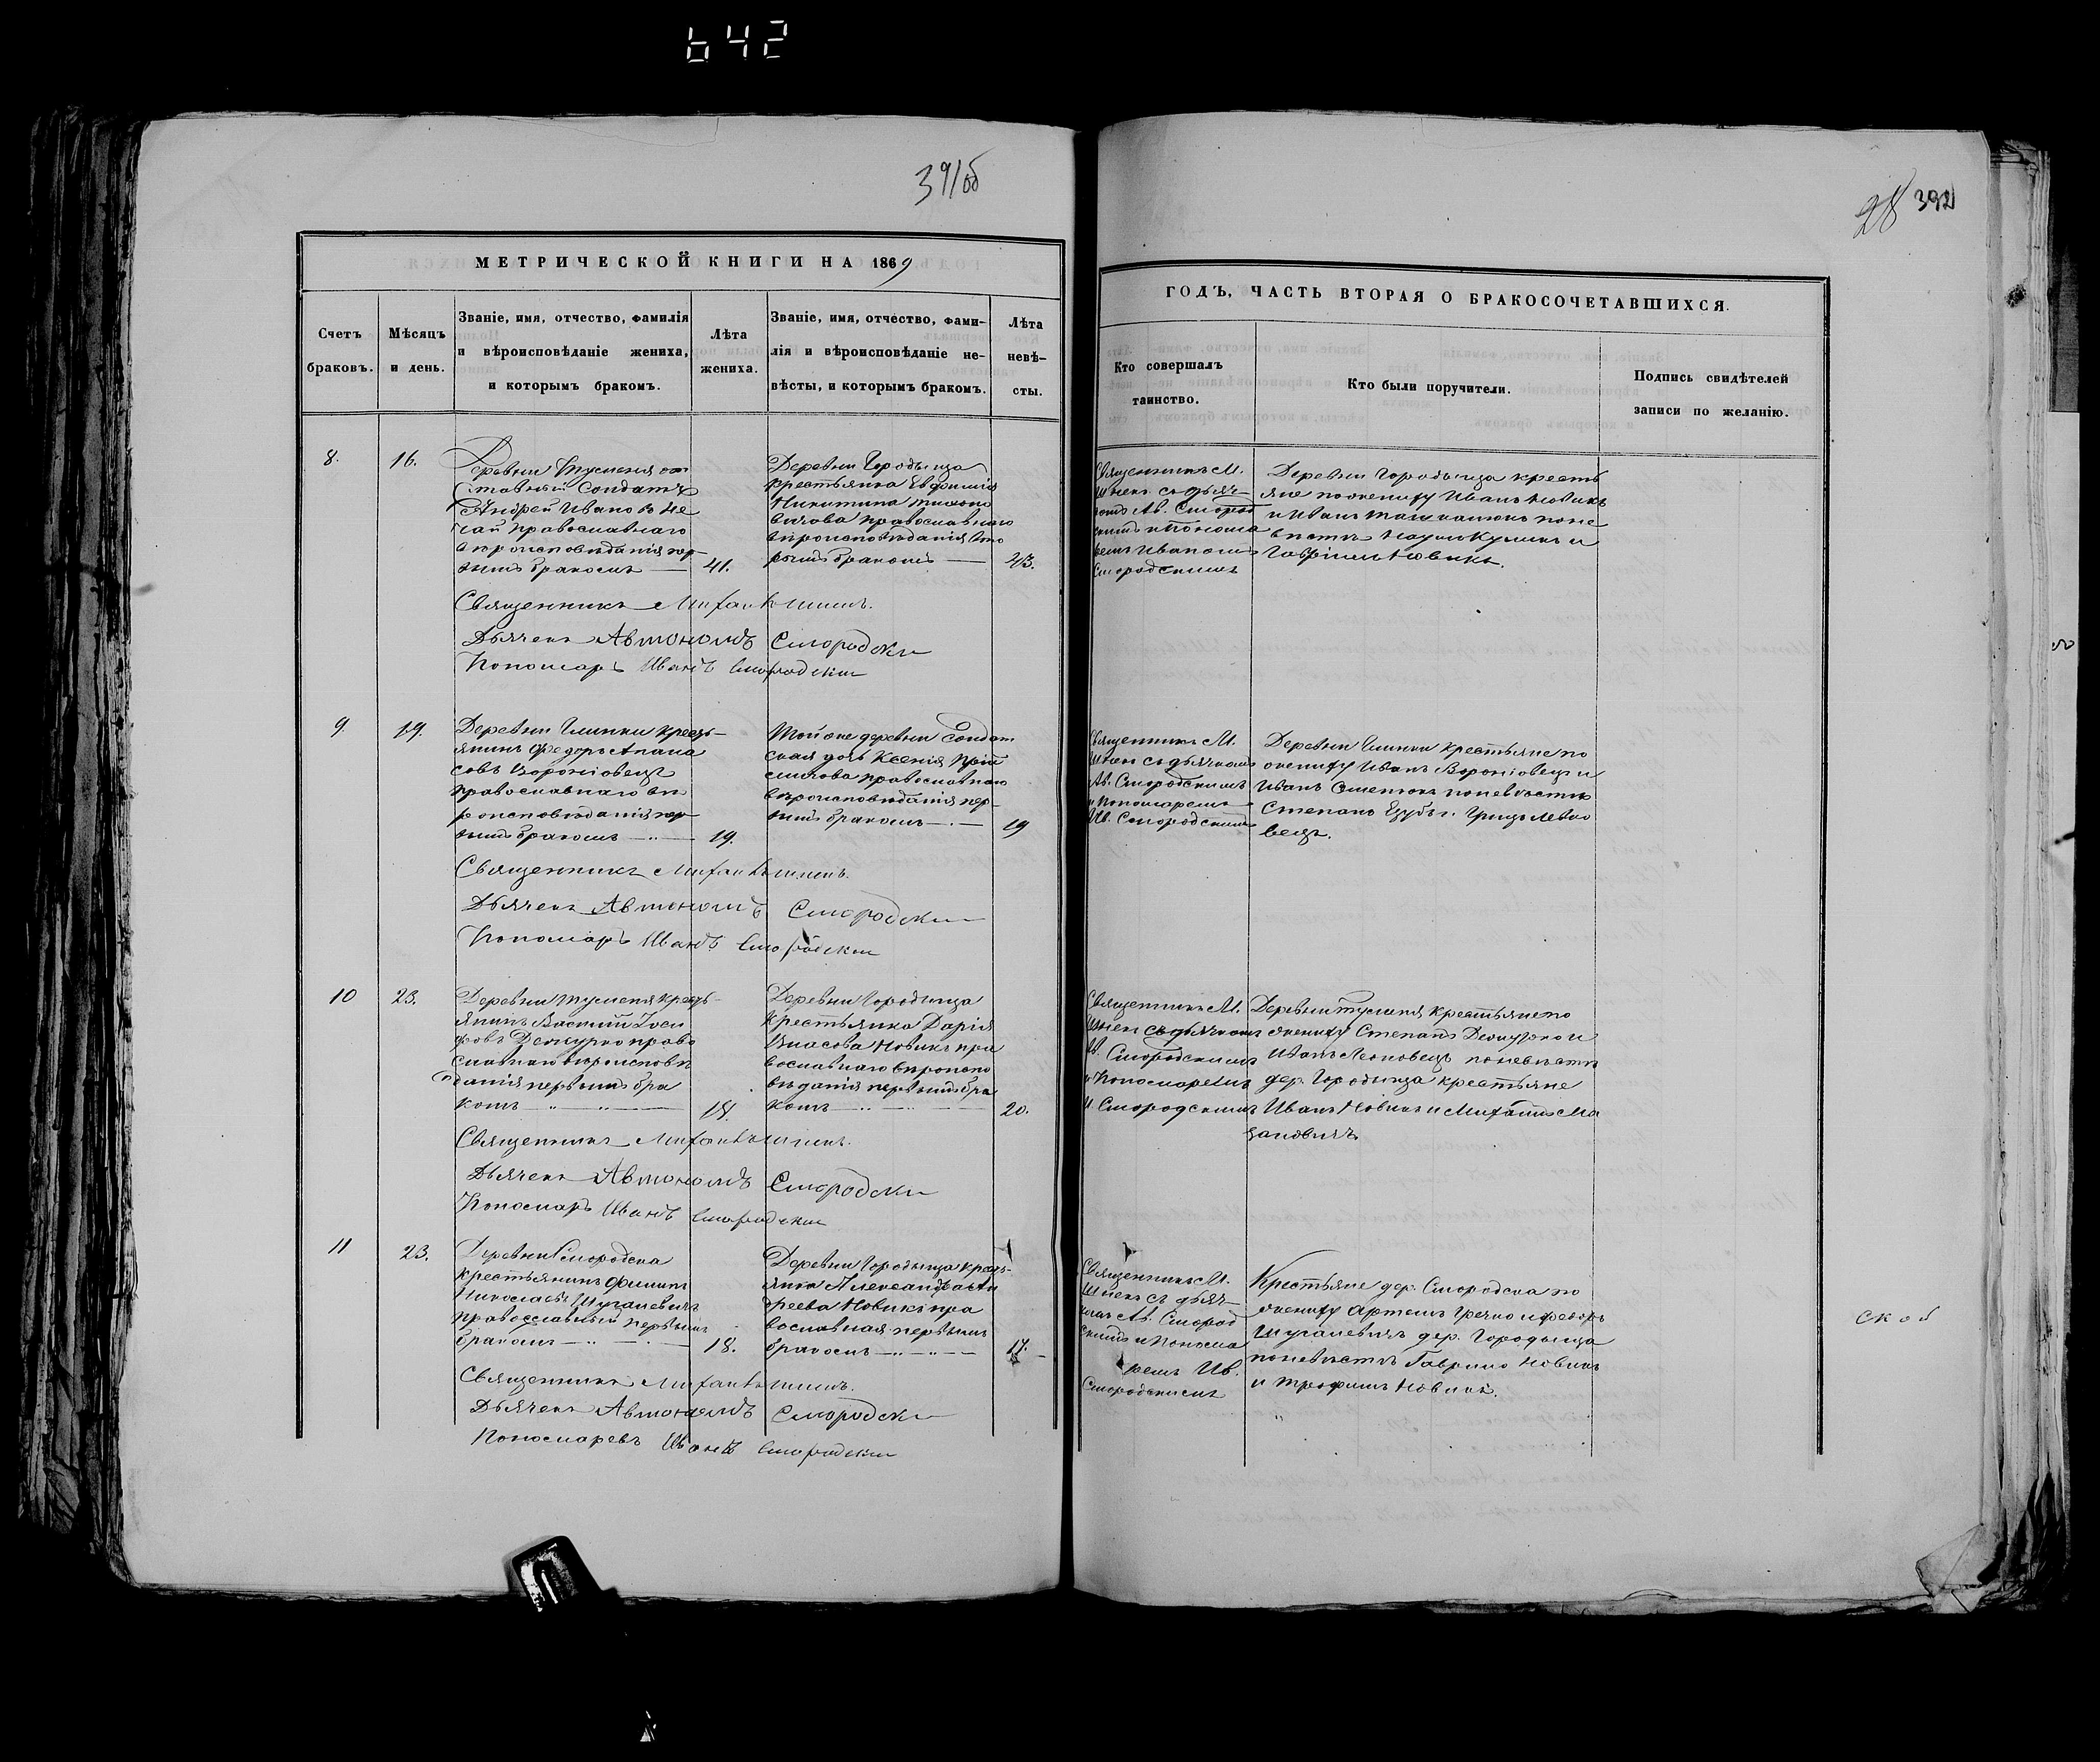 642
391об
28 392
МЕТРИЧЕСКОЙ КНИГИ НА 1869
Счетъ
браковъ.
Мѣсяцъ
и день.
Званіе, имя, отчество, фамилія
и вѣроисповѣданіе жениха,
и которымъ бракомъ.
Лѣта
жениха.
Званіе, имя, отчество, фами-
лія и вѣроисповѣданіе не-
вѣсты, и которымъ бракомъ.
Лѣта
невѣ-
сты.
8.
16.
Деревни Тумения от
ставный Солдатъ
Андрей Ивановъ Не
чай православнаго
вѣроисповѣданія пер
вымъ бракомъ
41.
Деревни Городыща
крестьянка Евфимія
Никитина
православнаго
вѣроисповѣданія вто
рымъ бракомъ
43.
Священникъ Михаилъ
Дьячекъ Автономъ Смородски
Пономарь Иванъ Смородски
9.
19.
Деревни Глинки кресть-
янинъ Федоръ Апана
совъ Вороніовецъ
православнаго вѣ
роисповѣданія пер
вымъ бракомъ
19.
Той же деревни Солдат
ская дочь Ксенія
православнаго
вѣроисповѣданія пер-
вымъ бракомъ
19
Священникъ Михаилъ
Дьячекъ Автономъ Смородски
Пономарь Иванъ Смородски
10
23.
Деревни Тумения кресть-
янинъ Василій Іоси
фовъ Демчурко право
славнаго вѣроисповѣ
данія первымъ бра
комъ
18.
Деревни Городыща
Крестьянка Дарія
Власова Новикъ пра
вославнаго вѣроиспо
вѣданія первымъ бра
комъ
20.
Священникъ Михаилъ
Дьячекъ Автономъ Смородски
Пономарь Иванъ Смородски
11
23.
Деревни Смородска
крестьянинъ Филипъ
Николаевъ Шугалевичъ
православный первымъ
бракомъ
18.
Деревни Городыща кресть-
янка Александра Ан
дреева Новикъ пра
вославная первымъ
бракомъ
17.
Священникъ Михаилъ
Дьячекъ Автономъ Смородски
Пономаревъ Иванъ Смородски
ГОДЪ, ЧАСТЬ ВТОРАЯ О БРАКОСОЧЕТАВШИХСЯ.
Кто совершалъ
таинство.
Кто были поручители.
Подпись свидѣтелей
записи по желанію.
Священникъ М.
съ дьяч-
комъ Ав. Смород
скимъ и Понома
ремъ Иваномъ
Смородскимъ
Деревни Городыща кресть
яне по жениху Иванъ Новикъ
и Иванъ по не
вѣстѣ Наумъ Куликъ и
Гавріилъ Новикъ.
Священникъ М.
съ дьячкомъ
Ав. Смородскимъ
и Пономаремъ
Ив. Смородскимъ
Деревни Глинки крестьяне по
жениху Иванъ Вороніовецъ и
Иванъ по невѣстѣ
Степанъ
вецъ.
Священникъ М.
съ дьячкомъ
Ав. Смородскимъ
и Пономаремъ
И. Смородскимъ
Деревни Тумения крестьяне по
жениху Степанъ Демчурко и
Иванъ по невѣстѣ
дер. Городыща крестьяне
Иванъ Новикъ и Михаилъ Ма
Священникъ М.
съ дьяч-
комъ Ав. Смород
скимъ и Понома
ремъ Ив.
Смородскимъ
Крестьяне дер. Смородска по
жениху Артемъ Гречко и Федоръ
Шугалевичъ дер. Городыща
по невѣстѣ Гаврило Новикъ
и Трофимъ Новикъ.
ской